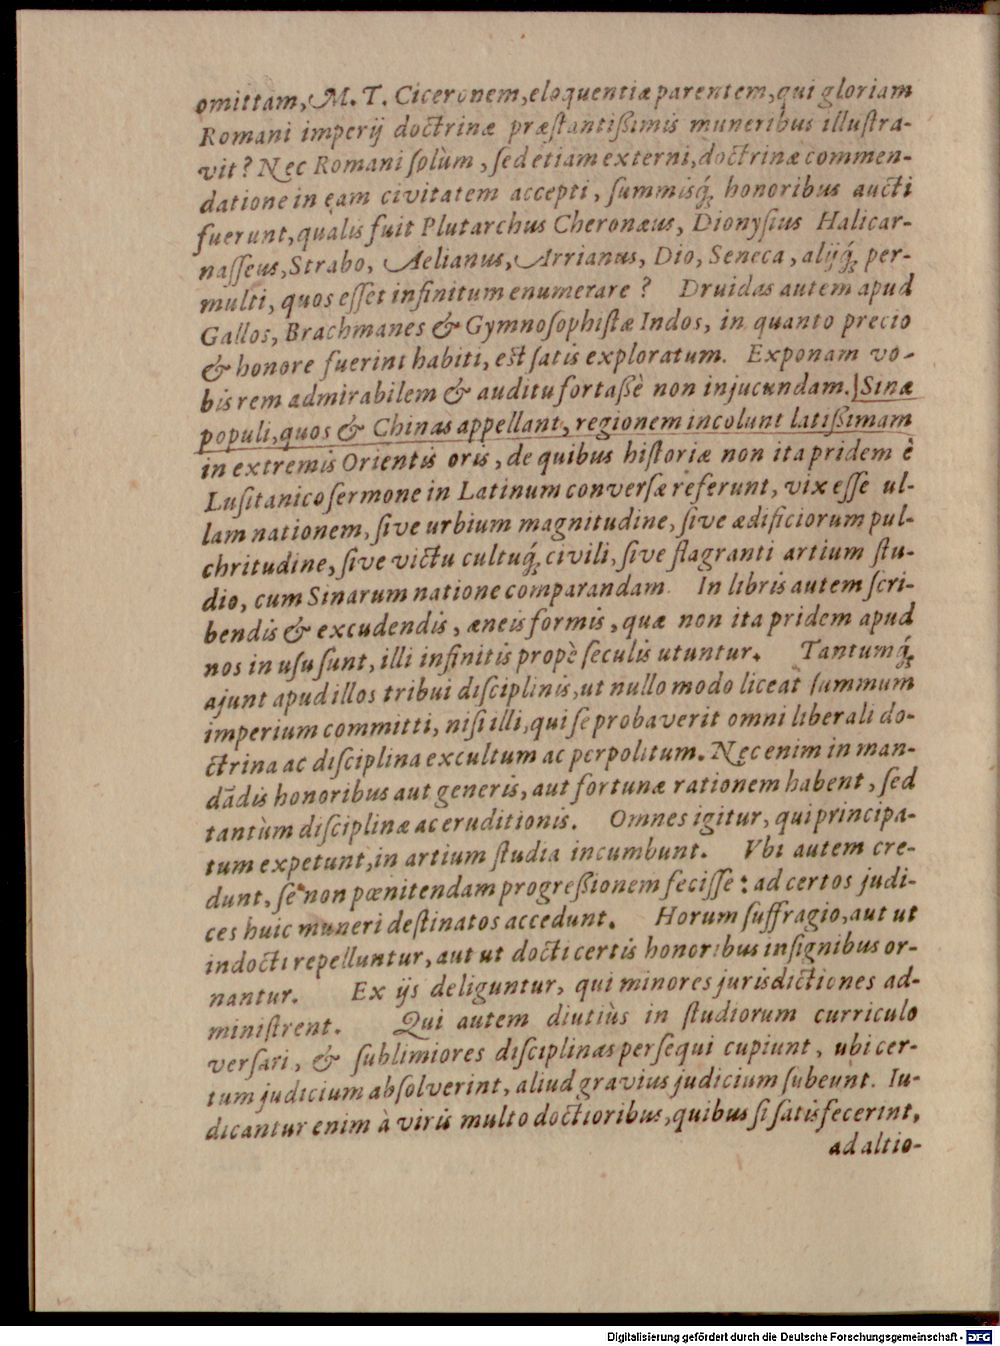 omittam, M. T. Ciceronem, eloquentiæ parentem, qui gloriam
Romani imperij doctrinæ præſtantißimis muneribus illuſtra-
vit? Nec Romani ſolùm, ſed etiam externi, doctrinæ commen-
datione in eam civitatem accepti, ſummisq́; honoribus aucti
fuerunt, qualis fuit Plutarchus Cheronæus, Dionyſius Halicar-
naſſeus, Strabo, Aelianus, Arrianus, Dio, Seneca, alijq́; per-
multi, quos eſſet infinitum enumerare? Druidas autem apud
Gallos, Brachmanes & Gymnoſophiſtæ Indos, in quanto precio
& honore fuerint habiti, est ſatis exploratum. Exponam vo-
bis rem admirabilem & auditu fortaßè non injucundam. Sinæ
populi, quos & Chinas appellant, regionem incolunt latißimam
in extremis Orientis oris, de quibus hiſtoriæ non ita pridem è
Luſitanico ſermone in Latinum converſæ referunt, vix eſſe ul-
lam nationem, ſive urbium magnitudine, ſive ædificiorum pul-
chritudine, ſive victu cultuq́; civili, ſive flagranti artium ſtu-
dio, cum Sinarum natione comparandam. In libris autem ſcri-
bendis & excudendis, æneis formis, quæ non ita pridem apud
nos in uſu ſunt, illi infinitis propè ſeculis utuntur. Tantumq́;
ajunt apud illos tribui diſciplinis, ut nullo modo liceat ſummum
imperium committi, niſi illi, qui ſe probaverit omni liberali do-
ctrina ac diſciplina excultum ac perpolitum. Nec enim in man-
dãdis honoribus aut generis, aut fortunæ rationem habent, ſed
tantùm diſciplinæ ac eruditionis. Omnes igitur, qui principa-
tum expetunt, in artium ſtudia incumbunt. Vbi autem cre-
dunt, ſe non pœnitendam progreßionem feciſſe: ad certos judi-
ces huic muneri deſtinatos accedunt. Horum ſuffragio, aut ut
indocti repelluntur, aut ut docti certis honoribus inſignibus or-
nantur. Ex ijs deliguntur, qui minores jurisdictiones ad-
miniſtrent. Qui autem diutiùs in ſtudiorum curriculo
verſari, & ſublimiores diſciplinas perſequi cupiunt, ubi cer-
tum judicium abſolverint, aliud gravius judicium ſubeunt. Iu-
dicantur enim à viris multo doctioribus, quibus ſi ſatisfecerint,
ad altio-
Digitalisierung gefördert durch die Deutsche Forschungsgemeinschaft - DFG